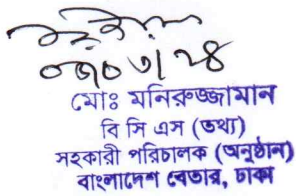 মোঃ মনিরুজ্জামান
বি সি এস (তথ্য)
সহকারী পরিচালক (অনুষ্ঠান)
বাংলাদেশ বেতার, ঢাকা